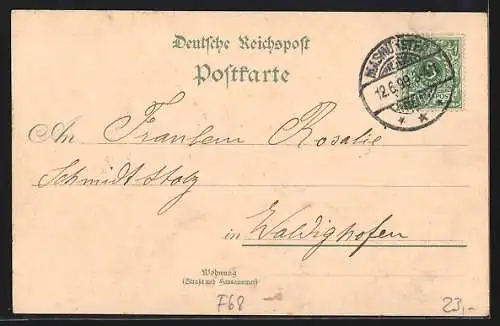 Deutsche Reichspost
Postkarte
12.6.99
An Fraulein Rosalie
Schmidt Stolz
in Waldighofen
Wohnung
(Straße und Hausnummer)
F68
23,-